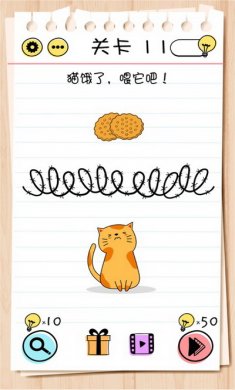 关卡 11
猫饿了，喂它吧！
×10
×50